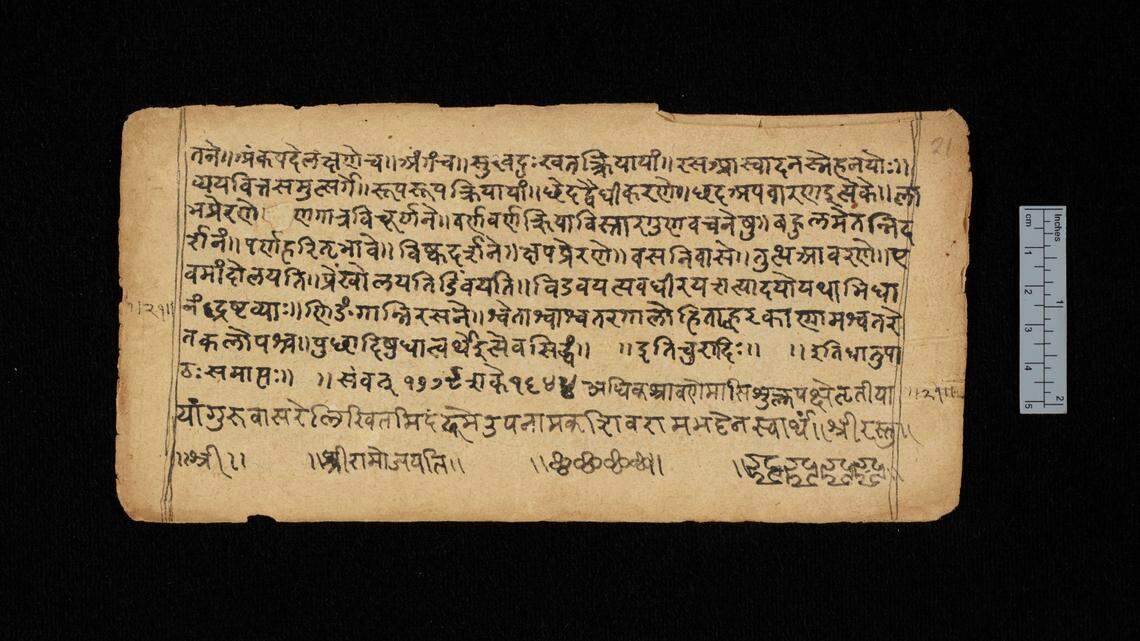 तने॥अंकपदेलक्षणेच॥अंगंच॥सुखदुःखतत्क्रियायां॥रसआस्वादनस्नेहनयोः॥
व्ययवित्तसमुत्सर्गे॥रूपरूपक्रियायां॥छेदद्वैधीकरणे॥छदअपवारणइत्येके॥ला
भप्रेरणे व्रणगात्रविचूर्णने॥वर्णवर्णक्रियाविस्तारगुणवचनेषु॥बहुलमेतन्निद
र्शनं॥पर्णहरितभावे॥विष्कदर्शने॥क्षेपप्रेरणे॥वसनिवासे॥तुत्थआवरणे॥ए
वमांदोलयति॥प्रेंखोलयतिडिंवयति॥विडवयत्यवधीरयत्यादयोयथाभिधा
नंद्रष्टव्याः॥णिङंगान्निरसने॥श्वेताश्वाश्वतरगालोडिताह्वरकाणामश्वतरे
तकलोपश्च॥पुछादिषुधात्वर्थइत्येवसिद्धं॥ ॥इतिचुरादिः॥ ॥इतिधातुपा
ठःसमाप्तः॥ ॥संवत् १७७९शके१६४४ अधिकश्रावणेमासिशुक्लपक्षेतृतीया
यांगुरुवासरेलिखितमिदं उपनामक मभट्टेनस्वार्थं॥श्रीरस्तु॥
॥श्री॥ ॥श्रीरामोजयति॥
॥२१॥
॥२१॥
21
Inches
cm
1
2
3
4
5
1
2